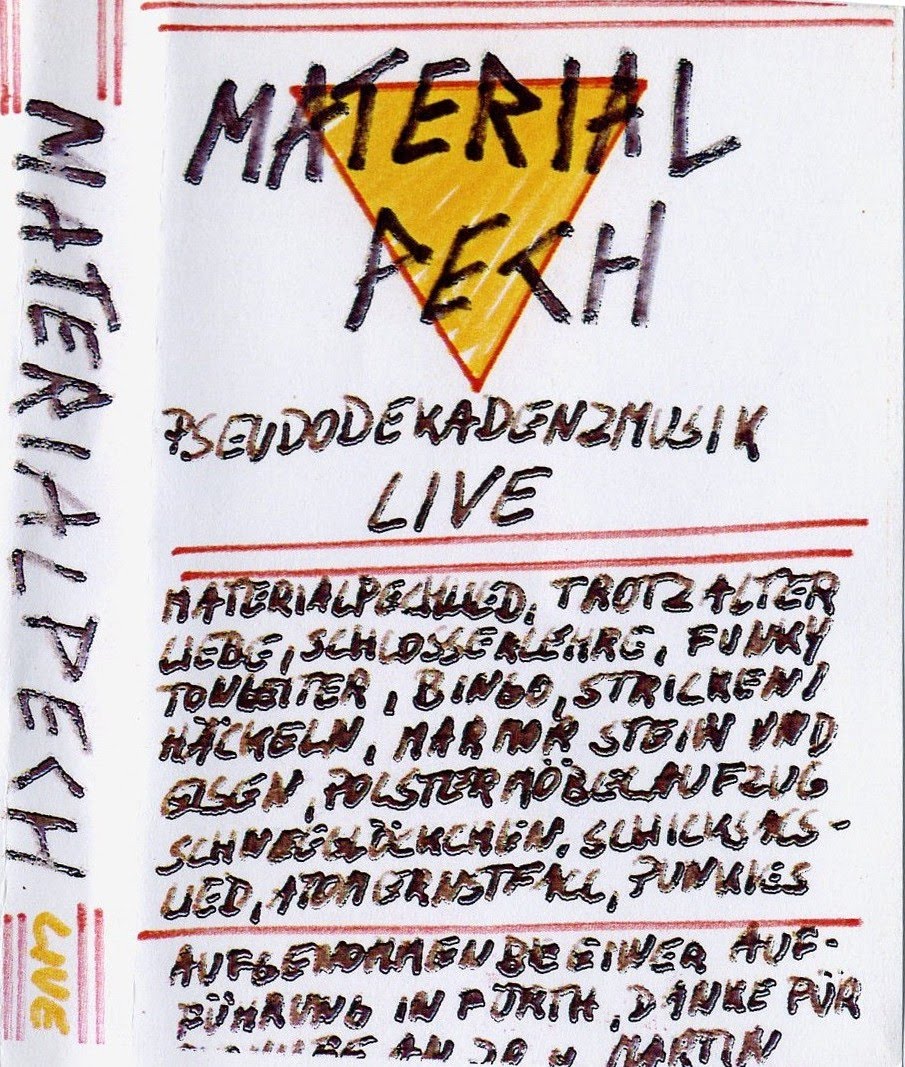 MATERIALPECH LIVE
MATERIAL
PECH
PSEUDODEKADENZMUSIK
LIVE
MATERIALPECHLIED, TROTZ ALTER
LIEBE, SCHLOSSERLEHRE, FUNKY
TONLEITER, BINGO, STRICKEN/
HÄCKELN, MARMOR STEIN UND
EISEN, POLSTERMÖBELAUFZUG
SCHNEEGLÖCKCHEN, SCHICKSALS-
LIED, ATOMERNSTFALL, PUNKIES
AUFGENOMMEN BEI EINER AUF-
FÜHRUNG IN FÜRTH, DANKE FÜR
AN MARTIN